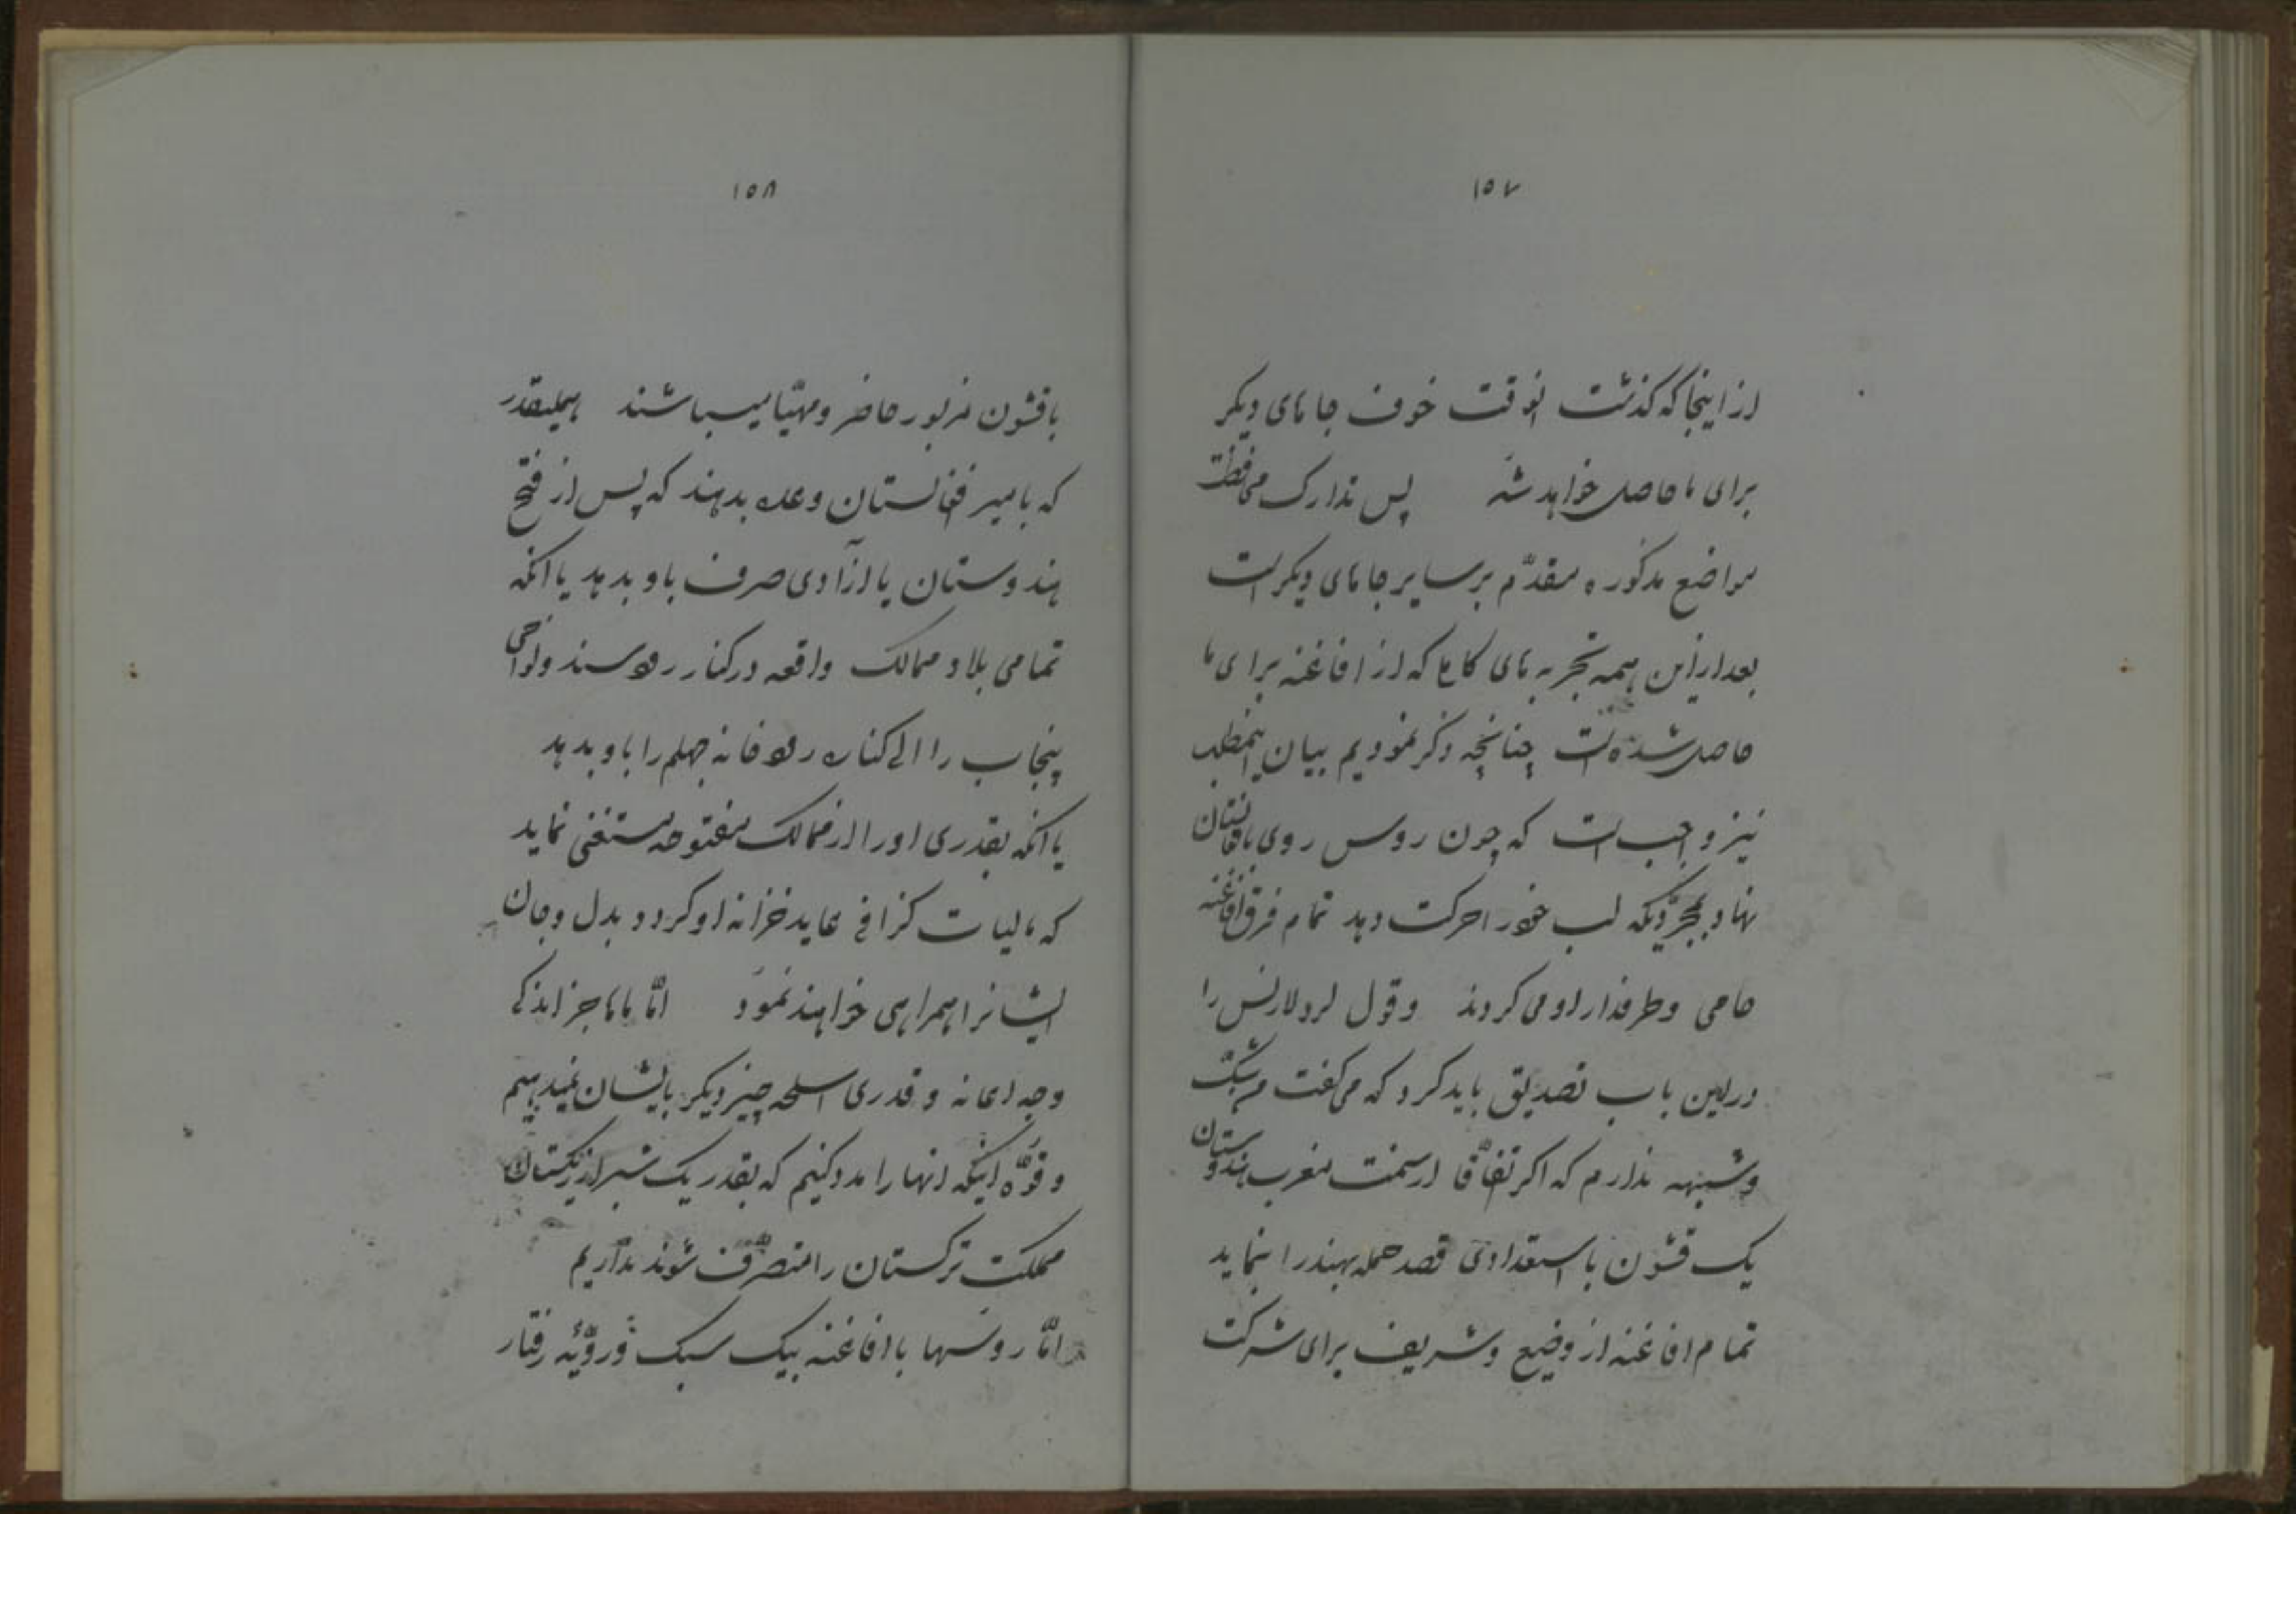 ۱۵۷
از اینجا که گذشت انوقت خوف جاهای دیگر
برای ما حاصل خواهد شد پس تدارک محافظت
مواضع مذکوره مقدّم بر سایر جاهای دیگر است
بعد از این همه تجربه های کامل که از افاغنه برای ما
حاصل شده است چنانچه ذکر نمودیم بیان اینمطلب
نیز واجب است که چون روس روی بافغانستان
نهاد بمجرّدیکه لب خود را حرکت دهد تمام فرق افاغنه
حامی وطرفدار او می کردند وقول لرد لارنس را
در این باب تصدیق باید کرد که می گفت من شک
وشبهه ندارم که اگر اتفاقا از سمت مغرب هندوستان
یک قشون با استعدادی قصد حمله بهند را بنماید
تمام افاغنه از وضیع وشریف برای شرکت
۱۵۸
با قشون مزبور حاضر ومهیّا میباشند همینقدر
که بامیر افغانستان وعده بدهند که پس از فتح
هندوستان یا آزادی صرف باو بدهد یا انکه
تمامی بلاد وممالک واقعه در کنار رود سند ونواحی
پنجاب را الی کناره رودخانه جهلم را باو بدهد
یا انکه بقدری او را از ممالک مفتوحه مستغنی نماید
که مالیات گزافی عاید خزانه او گردد و بدل وجان
ایشانرا همراهی خواهند نمود امّا ماها جز اندکی
وجه اعانه و قدری اسلحه چیز دیگر بایشان نمیدهیم
و قوّه اینکه انها را مدد کنیم که بقدر یک شبر از ترکستان
مملکت ترکستان را متصرّف شوند نداریم
امّا روسها با افاغنه بیک سبک و رویّه رفتار